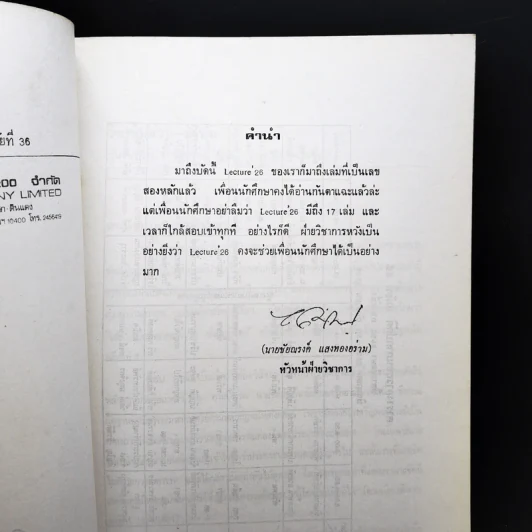 ยที่ 36
200 จำกัด
NY LIMITED
ก-ดินแดง
ฯ 10400 โทร. 245649
คำนำ
มาถึงบัดนี้ Lecture'26 ของเราก็มาถึงเล่มที่เป็นเลข
สองหลักแล้ว เพื่อนนักศึกษาคงได้อ่านกันตาแฉะแล้วล่ะ
แต่เพื่อนนักศึกษาอย่าลืมว่า Lecture'26 มีถึง 17 เล่ม และ
เวลาก็ใกล้สอบเข้าทุกที อย่างไรก็ดี ฝ่ายวิชาการหวังเป็น
อย่างยิ่งว่า Lecture'26 คงจะช่วยเพื่อนนักศึกษาได้เป็นอย่าง
มาก
(นายชัยณรงค์ แสงทองอร่าม)
หัวหน้าฝ่ายวิชาการ